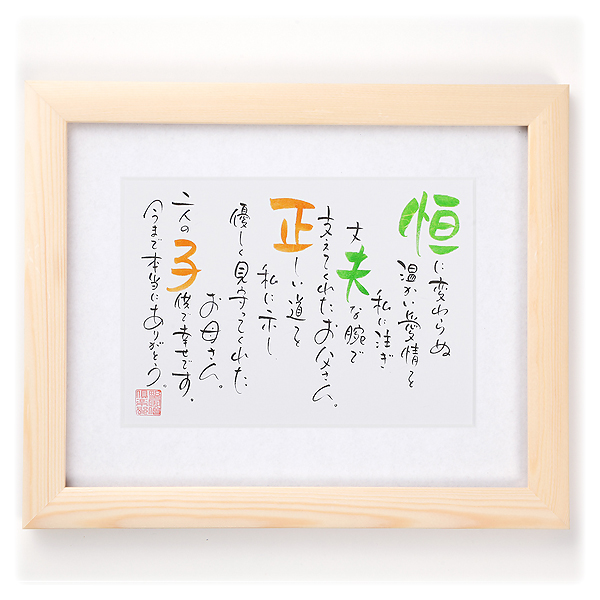 恒に変わらぬ
温かい愛情を
私に注ぎ
丈夫な腕で
支えてくれたお父さん。
正しい道を
私に示し
優しく見守ってくれた
お母さん。
二人の子供で幸せです。
今まで本当にありがとう。